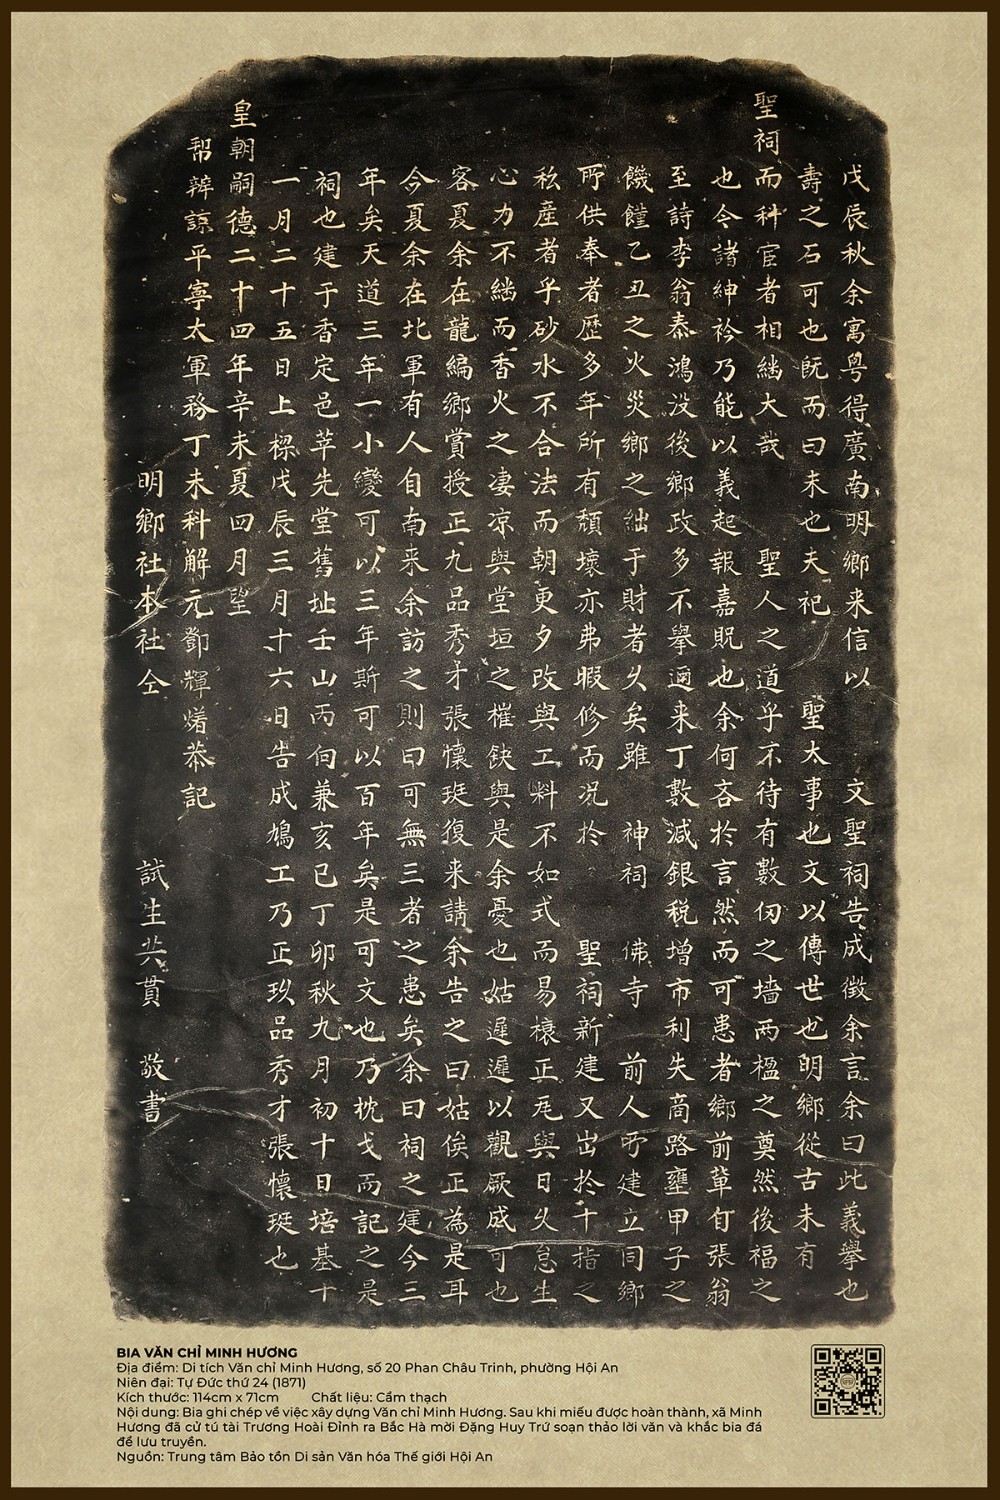 戊辰秋余寓粤得廣南明鄉来信以　文聖祠告成徵余言余曰此義擧也
壽之石可也既而曰未也夫祀　聖太事也文以傳世也明鄉從古未有
聖祠而科宦者相繼大哉　聖人之道乎不待有數仞之墻两楹之奠然後福之
也今諸紳衿乃能以義起報嘉貺也余何吝於言然而可患者鄉前軰自張翁
至詩李翁泰鴻没後鄉政多不擧邇来丁數減銀税增市利失商路壅甲子之
饑饉乙丑之火災鄉之絀于財者久矣雖　神祠　佛寺　前人所建立同鄉
所供奉者歷多年所有頹壞亦弗暇修而况於　聖祠新建又出於千指之
私産者乎砂水不合法而朝更夕改與工料不如式而易榱正瓦與日久怠生
心力不繼而香火之凄凉與堂垣之摧缺與是余憂也姑遲遲以觀厥成可也
客夏余在龍編鄉賞授正九品秀才張懷珽復来請余告之曰姑俟正為是耳
今夏余在北軍有人自南来余訪之則曰可無三者之患矣余曰祠之建今三
年矣天道三年一小變可以三年斯可以百年矣是可文也乃枕戈而記之是
祠也建于香定邑莘先堂舊址壬山丙向兼亥巳丁卯秋九月初十日培基十
一月二十五日上樑戊辰三月十六日告成鳩工乃正玖品秀才張懷珽也
皇朝嗣德二十四年辛未夏四月望
幇辦諒平寧太軍務丁未科解元鄧輝𤏸恭記
明鄉社本社仝　試生共貫　敬書
BIA VĂN CHỈ MINH HƯƠNG
Địa điểm: Di tích Văn chỉ Minh Hương, số 20 Phan Châu Trinh, phường Hội An
Niên đại: Tự Đức thứ 24 (1871)
Kích thước: 114cm x 71cm Chất liệu: Cẩm thạch
Nội dung: Bia ghi chép về việc xây dựng Văn chỉ Minh Hương. Sau khi miếu được hoàn thành, xã Minh
Hương đã cử tú tài Trương Hoài Đỉnh ra Bắc Hà mời Đặng Huy Trứ soạn thảo lời văn và khắc bia đá
để lưu truyền.
Nguồn: Trung tâm Bảo tồn Di sản Văn hóa Thế giới Hội An